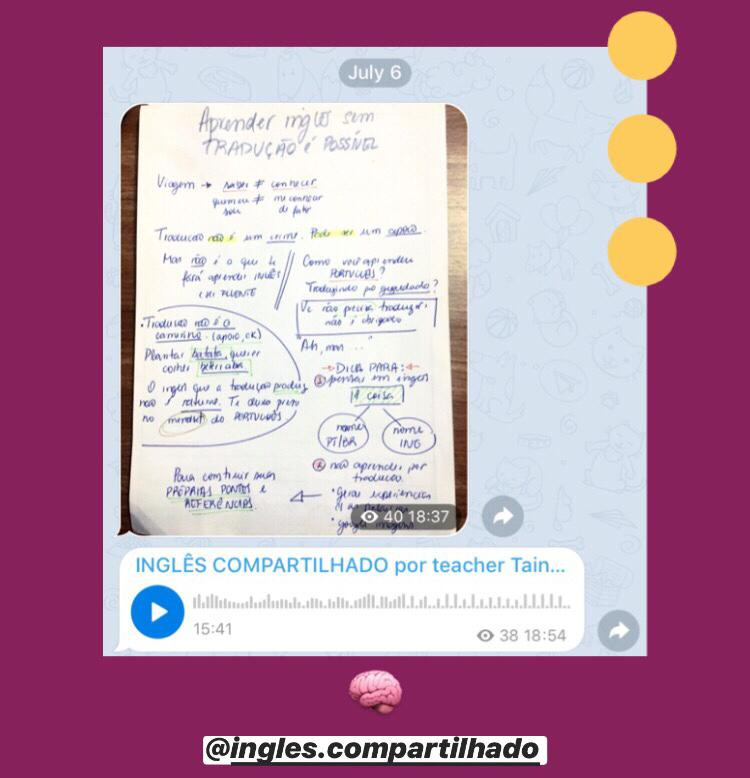 July 6
Aprender inglês sem
TRADUÇÃO é POSSÍVEL
Viagem → saber ≠ conhecer
quem eu ≠ me conhecer
sou de fato
Tradução não é um crime. Pode ser um apoio.
Mas não é o que te
fará aprender INGLÊS
e ser FLUENTE
Como você aprendeu
PORTUGUÊS?
Traduzindo pro
Vc não precisa traduzir,
não é obrigado
"Ah, mas ..."
• Tradução não é o
caminho. (apoio, ok)
Plantar batata, querer
colher beterraba
O inglês que a tradução produz
não é natural. Te deixa preso
no mindset do PORTUGUÊS
→ DICAS PARA: ←
① pensar em inglês
1ª coisa
nome
PT/BR
nome
ING
② não aprender por
tradução
• gerar experiências
• google imagens
Para construir suas
PRÓPRIAS PONTES e
REFERÊNCIAS
40 18:37
INGLÊS COMPARTILHADO por teacher Tain...
15:41
38 18:54
@ingles.compartilhado